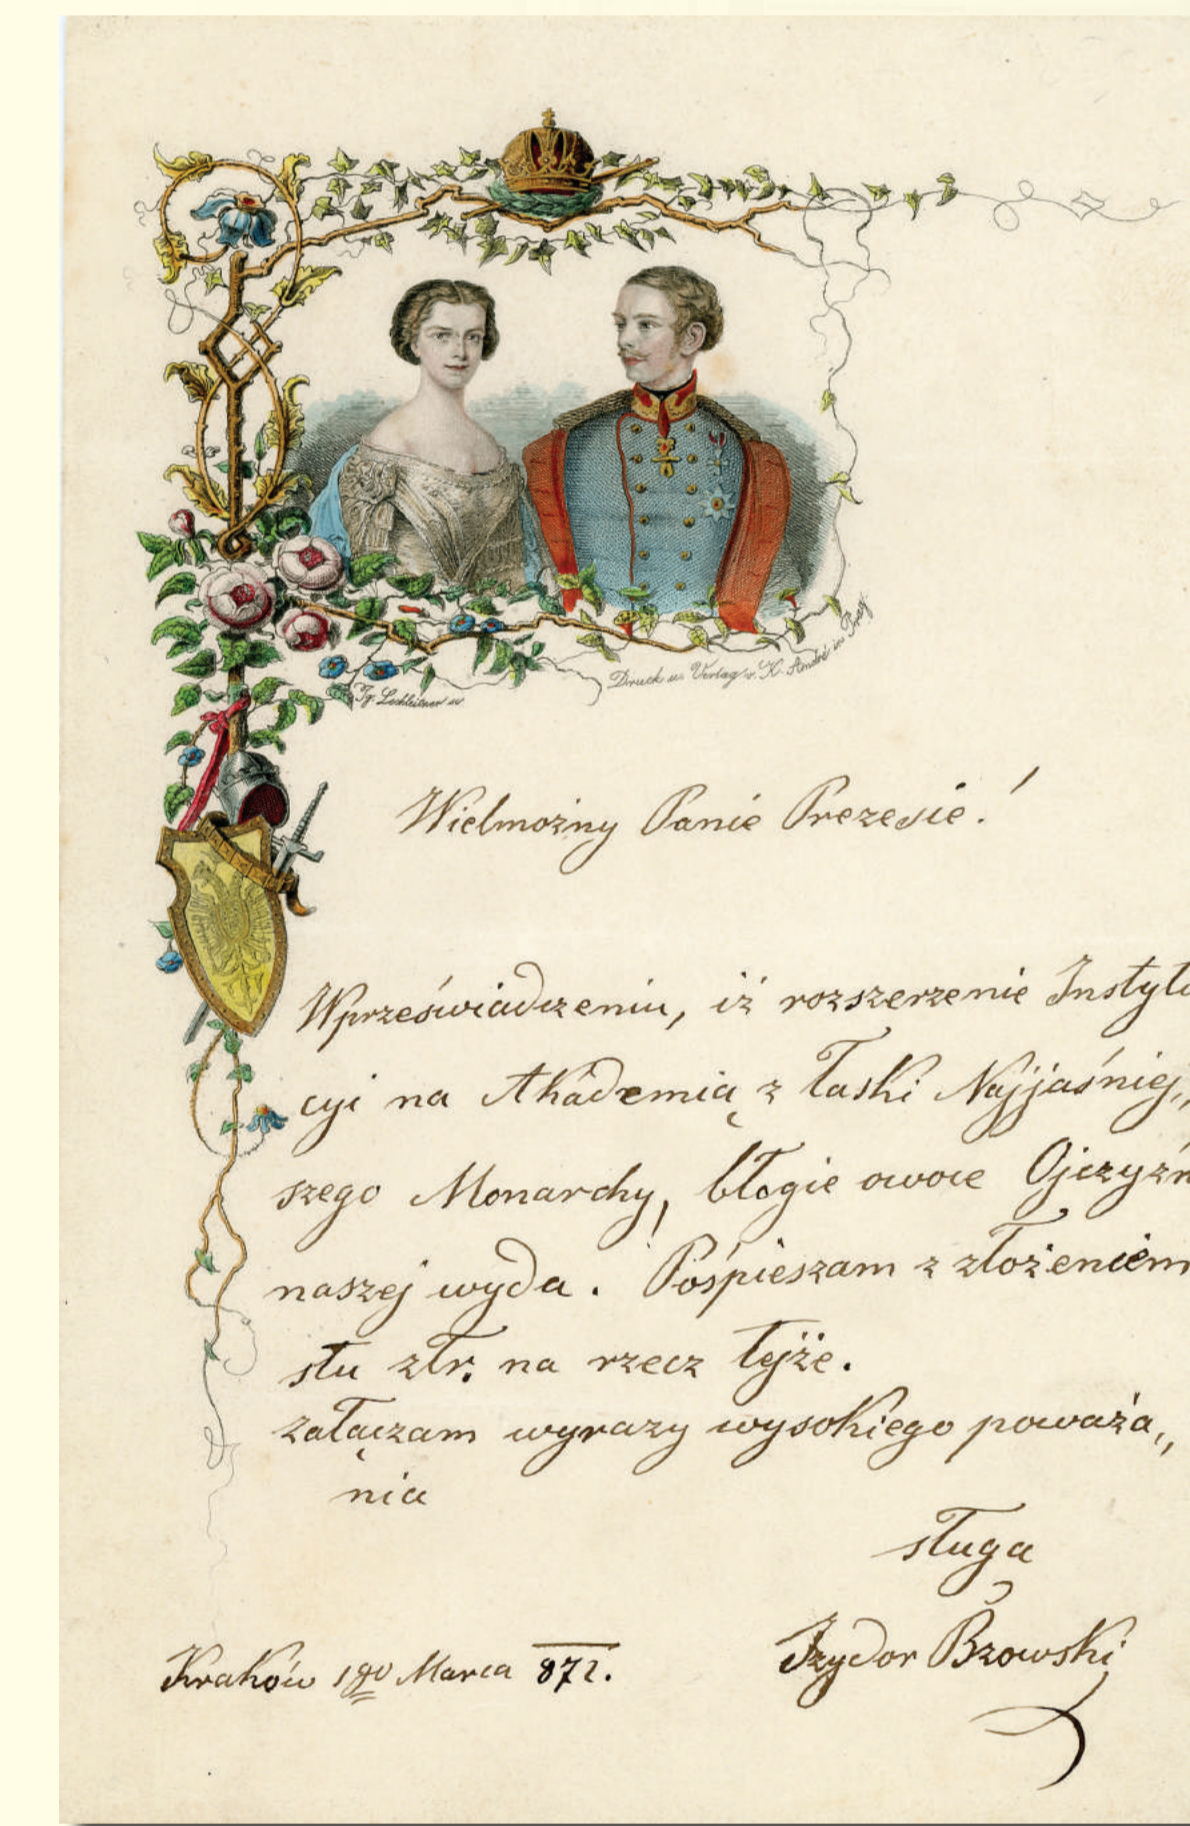 Jg. Lechleitner sc.
Druck u. Verlag v. K. André in Prag.
Wielmożny Panie Prezesie!
Wprzeświadczeniu, iż rozszerzenie Instytu
cyi na Akademią z łaski Najjaśniej„
szego Monarchy, błogie owoce Ojczyźn
naszej wyda. Pośpieszam z złożeniem
stu złr. na rzecz tejże.
załączam wyrazy wysokiego poważa„
nia
sługa
Izydor Bzowski
Kraków 1go Marca 872.